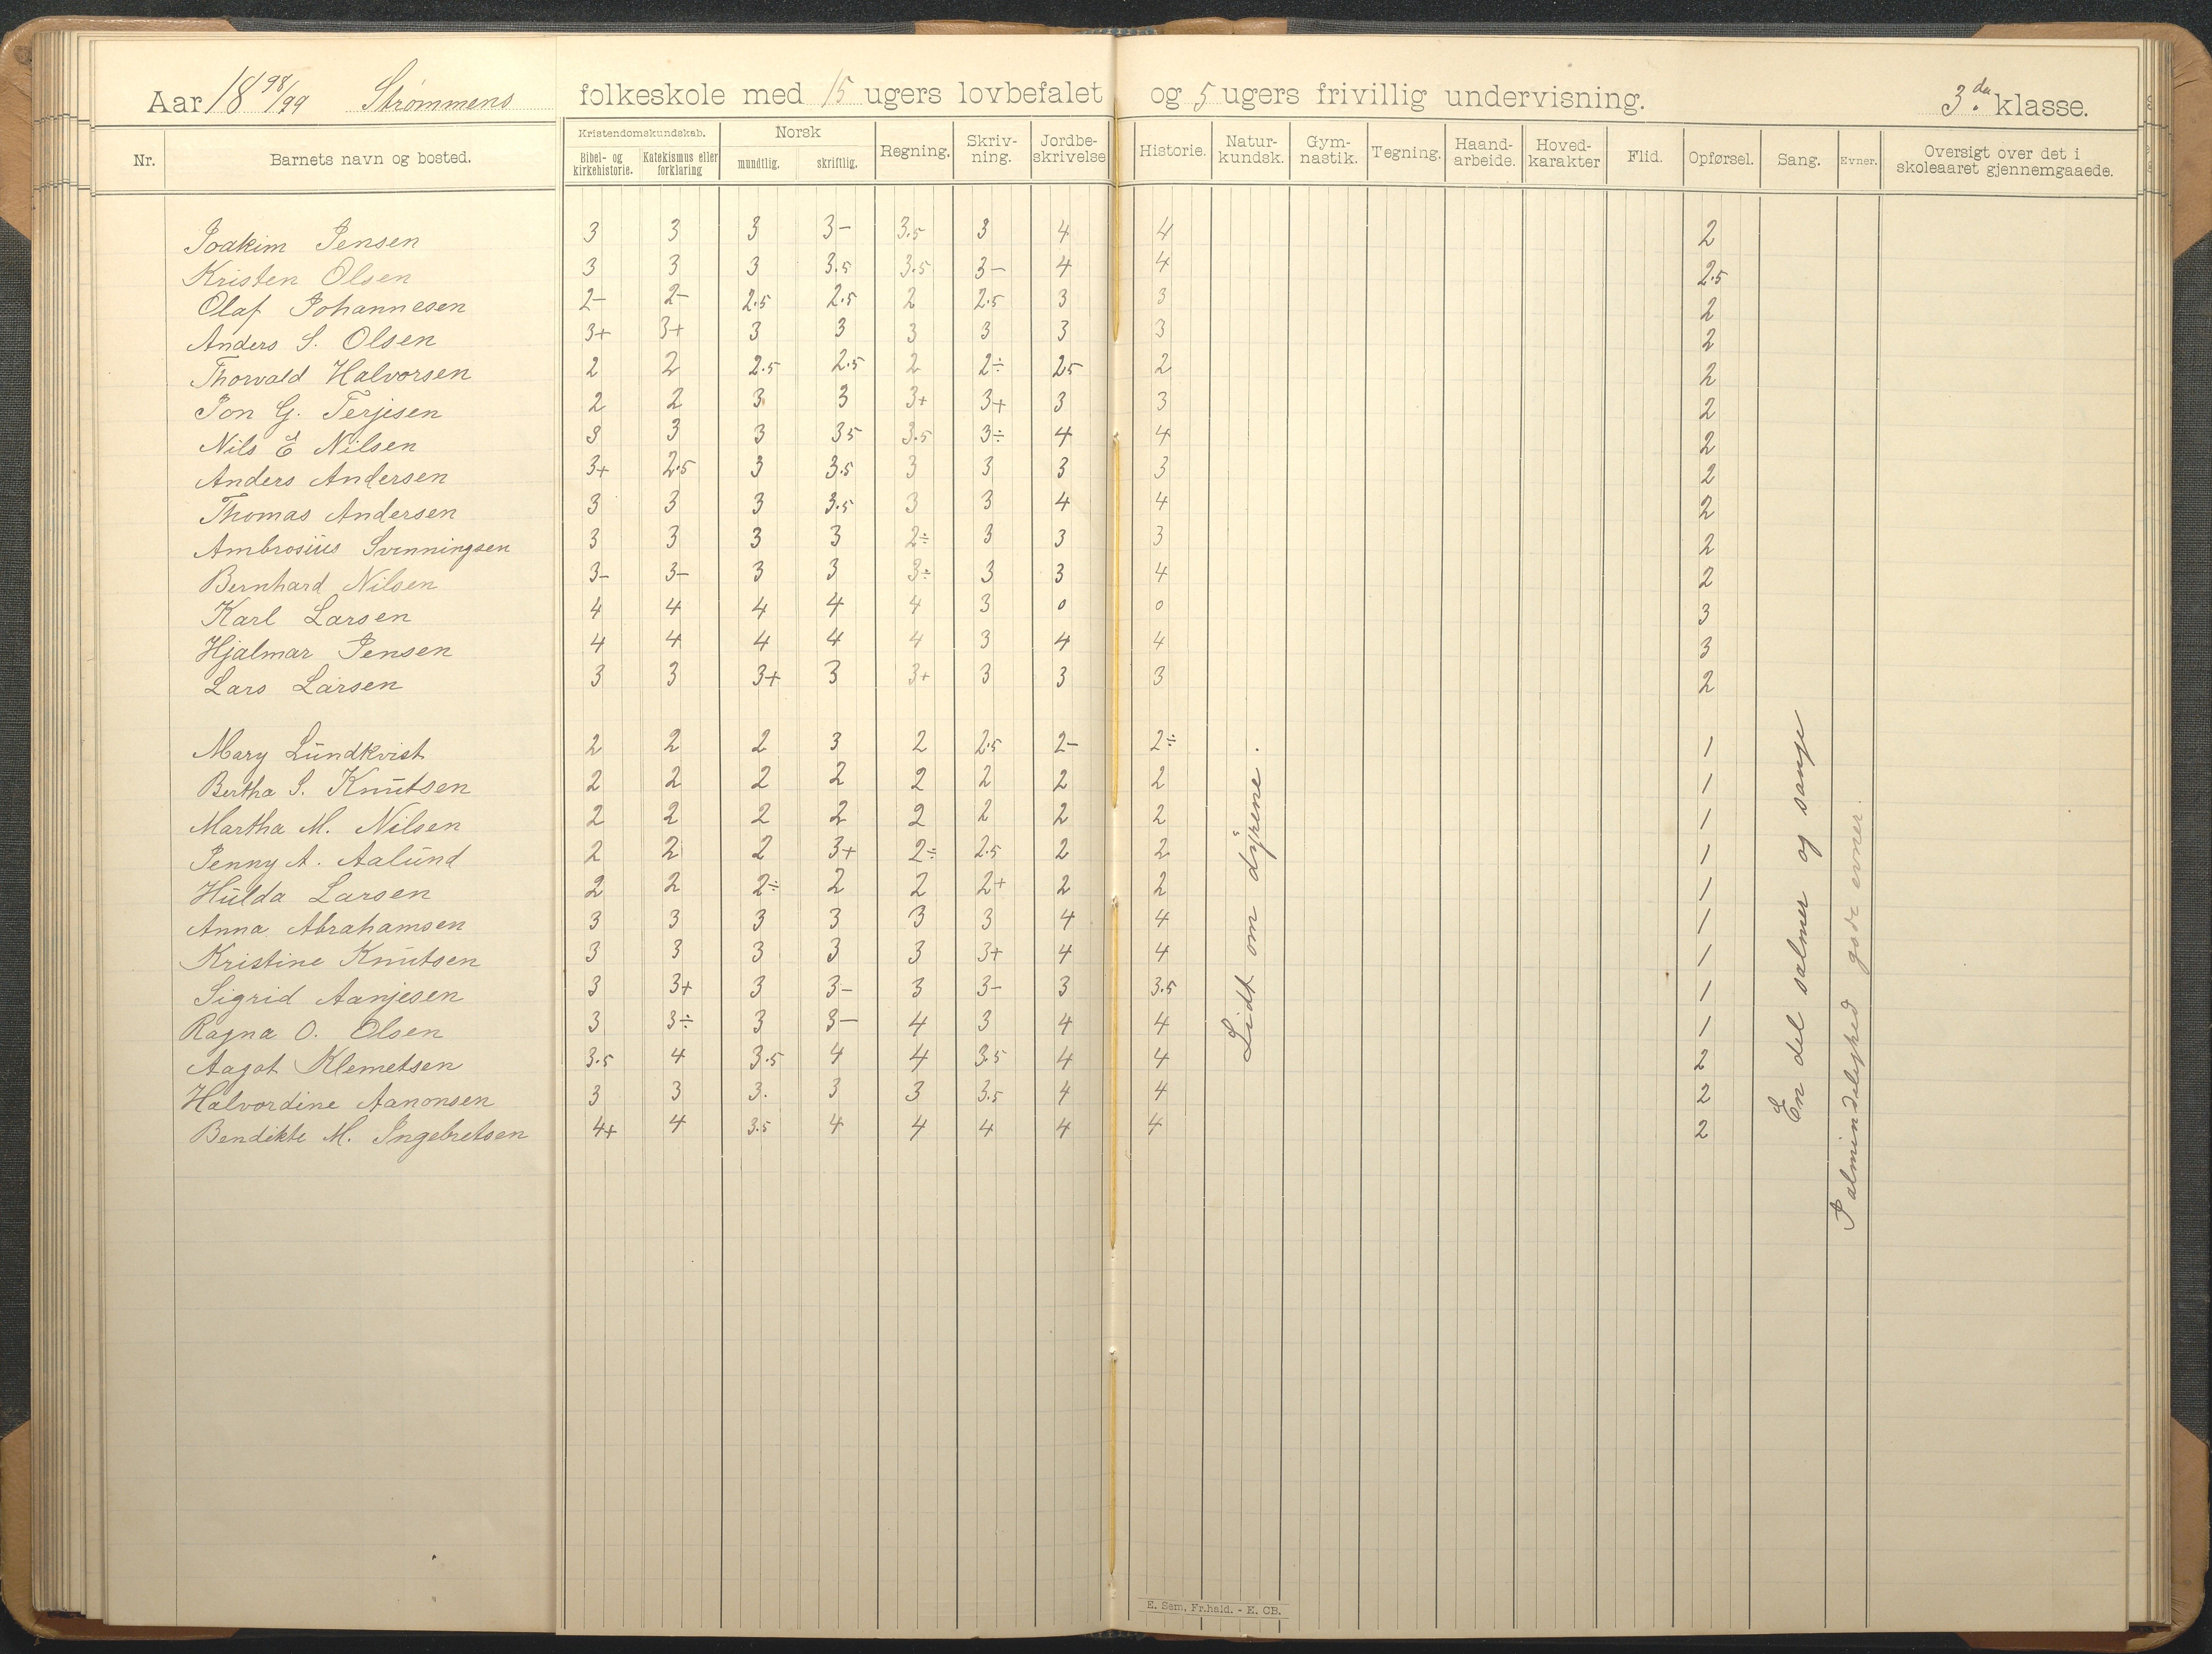 Aar 18 98/99 Strømmens folkeskole med 15 ugers lovbefalet og 5 ugers frivillig undervisning. 3.die klasse.
Nr. Barnets navn og bosted. Kristendomskundskab. Bibel- og kirkehistorie. Katekismus eller forklaring Norsk mundtlig. skriftlig. Regning. Skriv-ning. Jordbe-skrivelse Historie. Natur-kundsk. Gym-nastik. Tegning. Haand-arbeide. Hoved-karakter Flid. Opførsel. Sang. Evner. Oversigt over det i skoleaaret gjennemgaaede.
Joakim Jensen 3 3 3 3- 3.5 3 4 4 2
Kristen Olsen 3 3 3 3.5 3.5 3- 4 4 2.5
Olaf Johannesen 2- 2- 2.5 2.5 2 2.5 3 3 2
Anders S. Olsen 3+ 3+ 3 3 3 3 3 3 2
Thorvald Halvorsen 2 2 2.5 2.5 2 2÷ 25 2 2
Jon G. Terjesen 2 2 3 3 3+ 3+ 3 3 2
Nils E Nilsen 3 3 3 35 3.5 3÷ 4 4 2
Anders Andersen 3+ 2.5 3 3.5 3 3 3 3 2
Thomas Andersen 3 3 3 3.5 3 3 4 4 2
Ambrosius Svenningsen 3 3 3 3 2÷ 3 3 3 2
Bernhard Nilsen 3- 3- 3 3 3÷ 3 3 4 2
Karl Larsen 4 4 4 4 4 3 0 0 3
Hjalmar Jensen 4 4 4 4 4 3 4 4 3
Lars Larsen 3 3 3+ 3 3+ 3 3 3 2
Mary Lundkvist 2 2 2 3 2 2.5 2- 2÷ 1
Bertha S. Knutsen 2 2 2 2 2 2 2 2 1
Martha M. Nilsen 2 2 2 2 2 2 2 2 1
Jenny A. Aalund 2 2 2 3+ 2÷ 2.5 2 2 1
Hulda Larsen 2 2 2÷ 2 2 2+ 2 2 1
Anna Abrahamsen 3 3 3 3 3 3 4 4 1
Kristine Knutsen 3 3 3 3 3 3+ 4 4 1
Sigrid Aanjesen 3 3+ 3 3- 3 3- 3 3.5 1
Ragna O. Olsen 3 3÷ 3 3- 4 3 4 4 1
Aagot Klemetsen 3.5 4 3.5 4 4 3.5 4 4 2
Halvordine Aanonsen 3 3 3. 3 3 3.5 4 4 2
Bendikte M. Ingebretsen 4+ 4 3.5 4 4 4 4 4 2
Lidt om dyrene.
En del salmer og sange
I almindelighed gode evner.
E. Sem, Fr.hald. - E. CB.